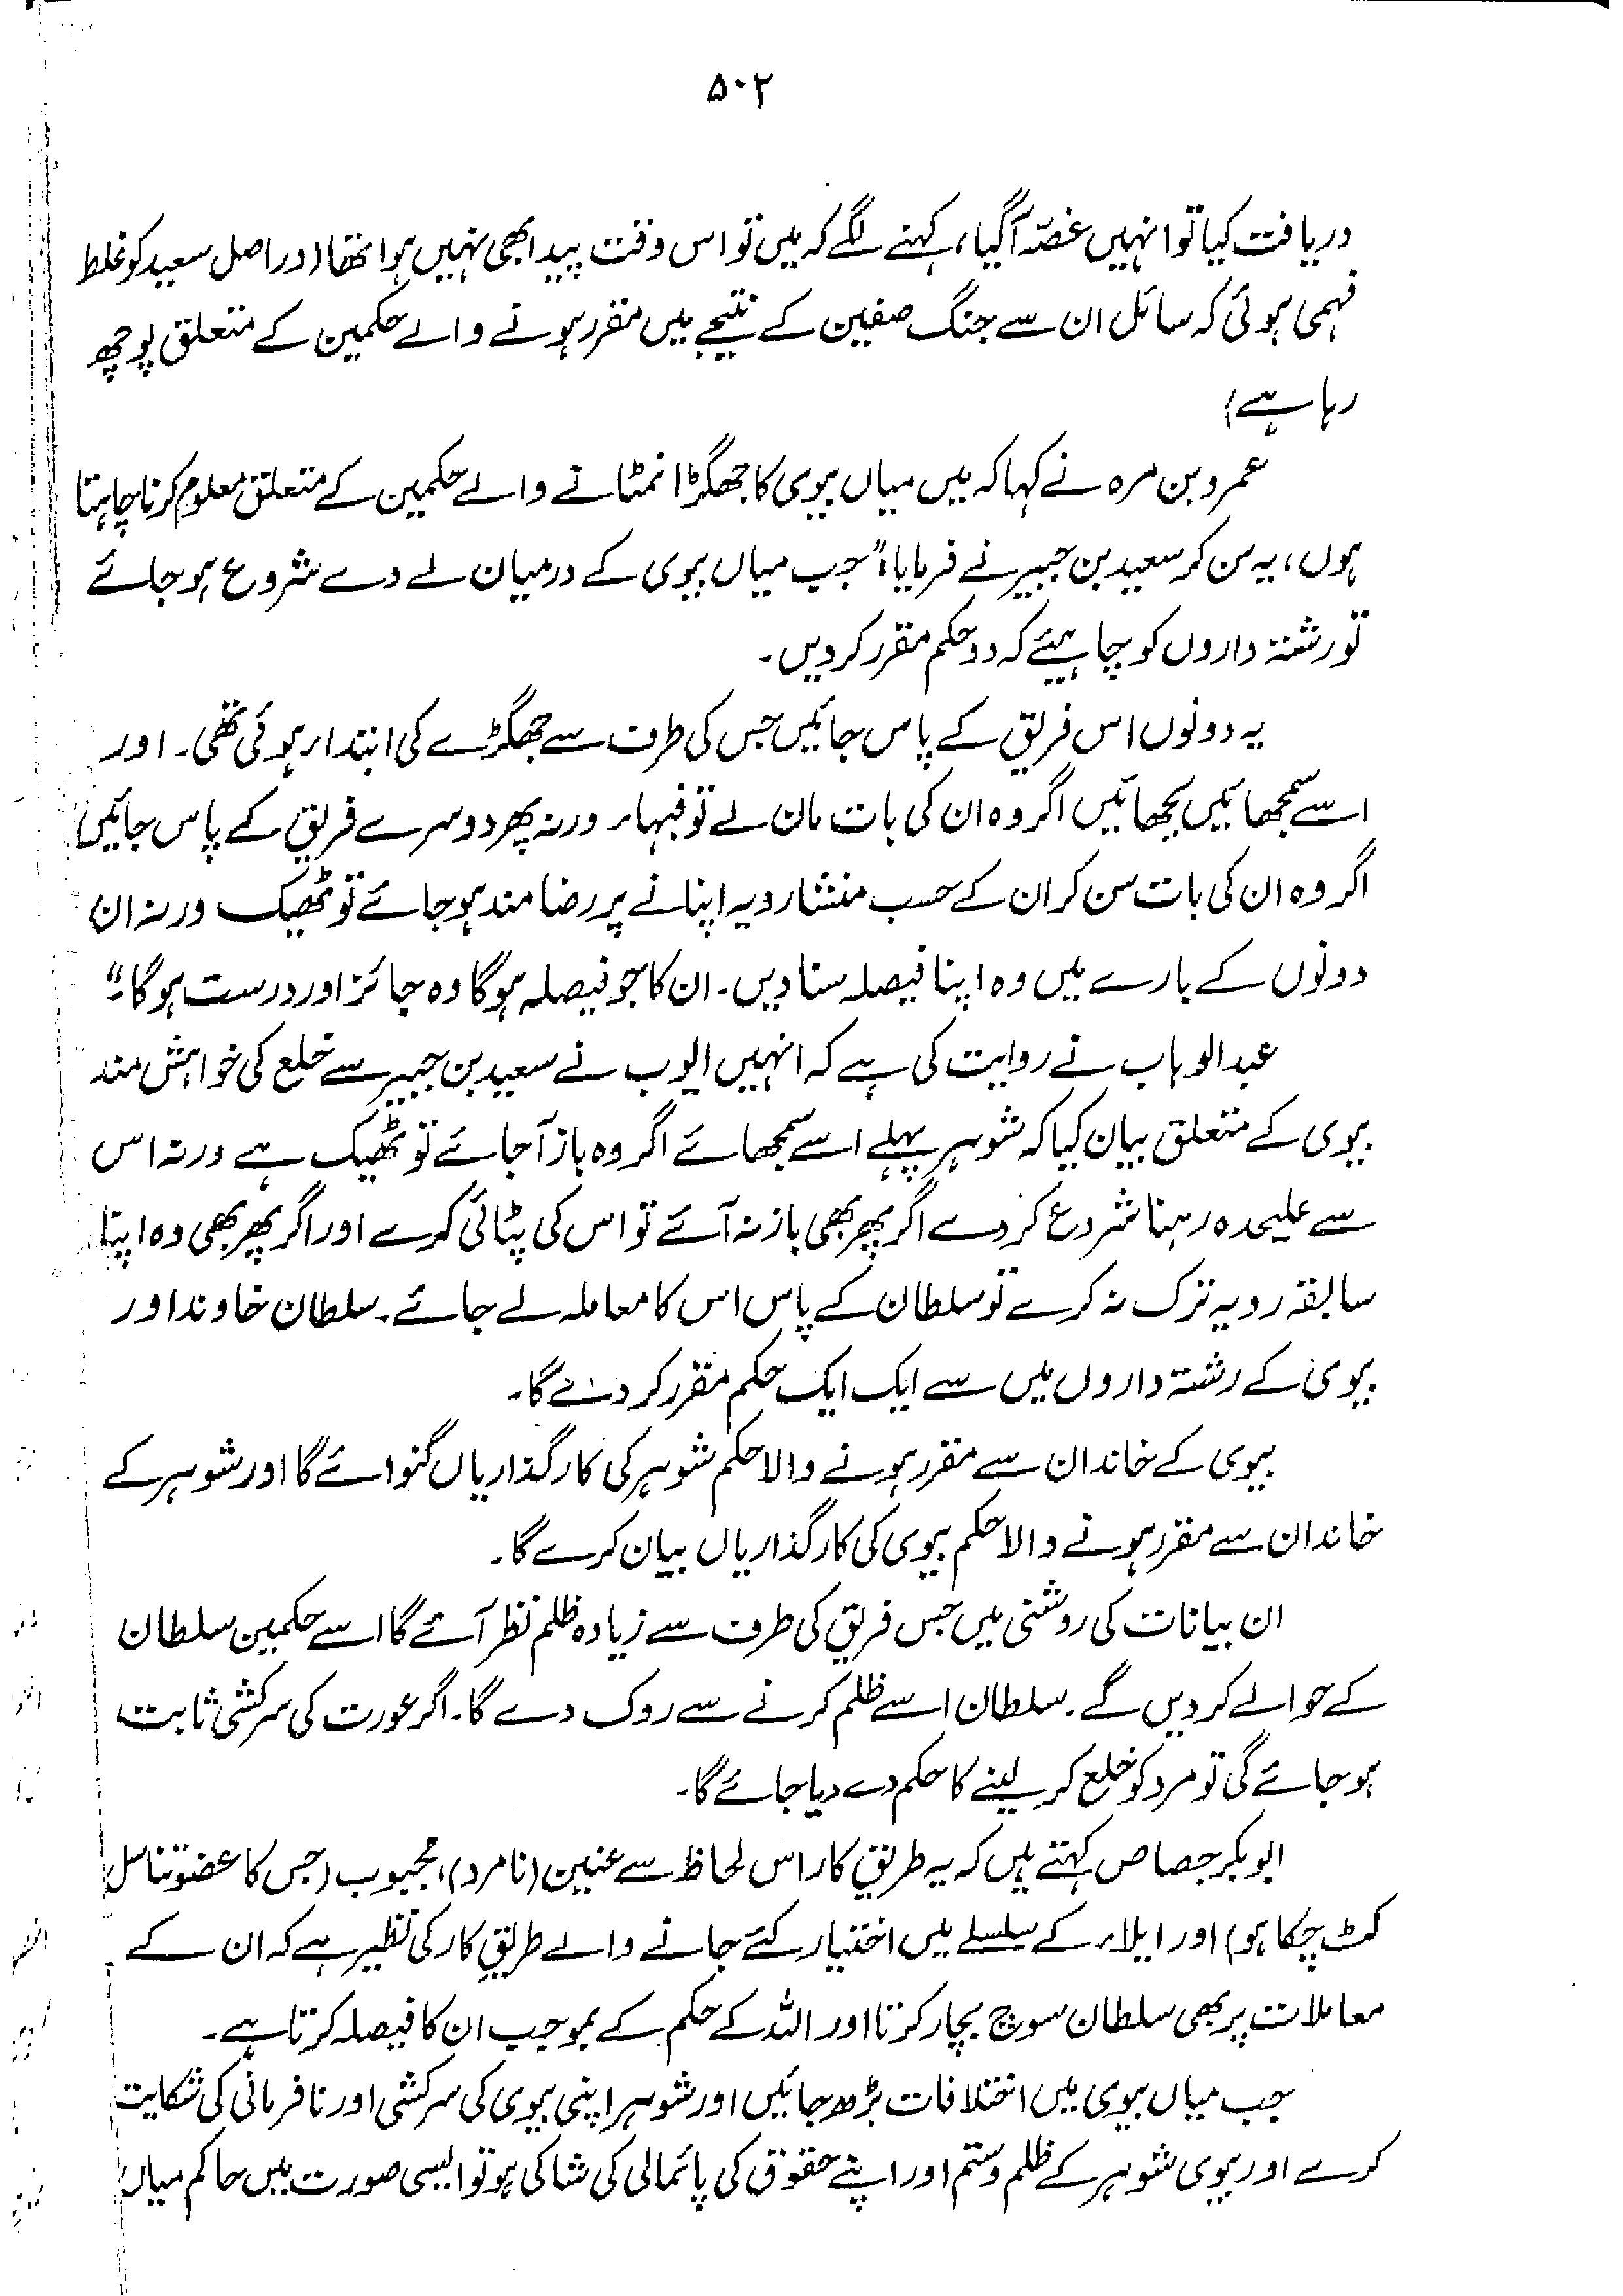 ۵۰۲
دریافت کیا تو انہیں غصّہ آگیا، کہنے لگے کہ میں تو اس وقت پیدا بھی نہیں ہوا تھا (دراصل سعید کو غلط
فہمی ہوئی کہ سائل ان سے جنگ صفین کے نتیجے میں مقرر ہونے والے حکمین کے متعلق پوچھ
رہا ہے)
عمرو بن مرہ نے کہا کہ میں میاں بیوی کا جھگڑا نمٹانے والے حکمین کے متعلق معلوم کرنا چاہتا
ہوں، یہ سن کر سعید بن جبیر نے فرمایا: "جب میاں بیوی کے درمیان لے دے شروع ہو جائے
تو رشتہ داروں کو چاہیئے کہ دو حکم مقرر کر دیں۔
یہ دونوں اس فریق کے پاس جائیں جس کی طرف سے جھگڑے کی ابتداء ہوئی تھی۔ اور
اسے سمجھائیں بجھائیں اگر وہ ان کی بات مان لے تو فبہا، ورنہ پھر دوسرے فریق کے پاس جائیں
اگر وہ ان کی بات سن کر ان کے حسب منشاء رویہ اپنانے پر رضامند ہو جائے تو ٹھیک ورنہ ان
دونوں کے بارے میں وہ اپنا فیصلہ سنا دیں۔ ان کا جو فیصلہ ہوگا وہ جائز اور درست ہوگا۔"
عبدالوہاب نے روایت کی ہے کہ انہیں ایوب نے سعید بن جبیر سے خلع کی خواہش مند
بیوی کے متعلق بیان کیا کہ شوہر پہلے اسے سمجھائے اگر وہ باز آجائے تو ٹھیک ہے ورنہ اس
سے علیحدہ رہنا شروع کر دے اگر پھر بھی باز نہ آئے تو اس کی پٹائی کرے اور اگر پھر بھی وہ اپنا
سابقہ رویہ ترک نہ کرے تو سلطان کے پاس اس کا معاملہ لے جائے۔ سلطان خاوند اور
بیوی کے رشتہ داروں میں سے ایک ایک حکم مقرر کر دے گا۔
بیوی کے خاندان سے مقرر ہونے والا حکم شوہر کی کارگذاریاں گنوائے گا اور شوہر کے
خاندان سے مقرر ہونے والا حکم بیوی کی کارگذاریاں بیان کرے گا۔
ان بیانات کی روشنی میں جس فریق کی طرف سے زیادہ ظلم نظر آئے گا اسے حکمین سلطان
کے حوالے کر دیں گے۔ سلطان اسے ظلم کرنے سے روک دے گا۔ اگر عورت کی سرکشی ثابت
ہو جائے گی تو مرد کو خلع کر لینے کا حکم دے دیا جائے گا۔
ابوبکر جصاص کہتے ہیں کہ یہ طریق کار اس لحاظ سے عنین (نامرد)، مجبوب (جس کا عضو تناسل
کٹ چکا ہو) اور ایلاء کے سلسلے میں اختیار کئے جانے والے طریقِ کار کی نظیر ہے کہ ان کے
معاملات پر بھی سلطان سوچ بچار کرتا اور اللہ کے حکم کے بموجب ان کا فیصلہ کرتا ہے۔
جب میاں بیوی میں اختلافات بڑھ جائیں اور شوہر اپنی بیوی کی سرکشی اور نافرمانی کی شکایت
کرے اور بیوی شوہر کے ظلم و ستم اور اپنے حقوق کی پائمالی کی شاکی ہو تو ایسی صورت میں حاکم میاں